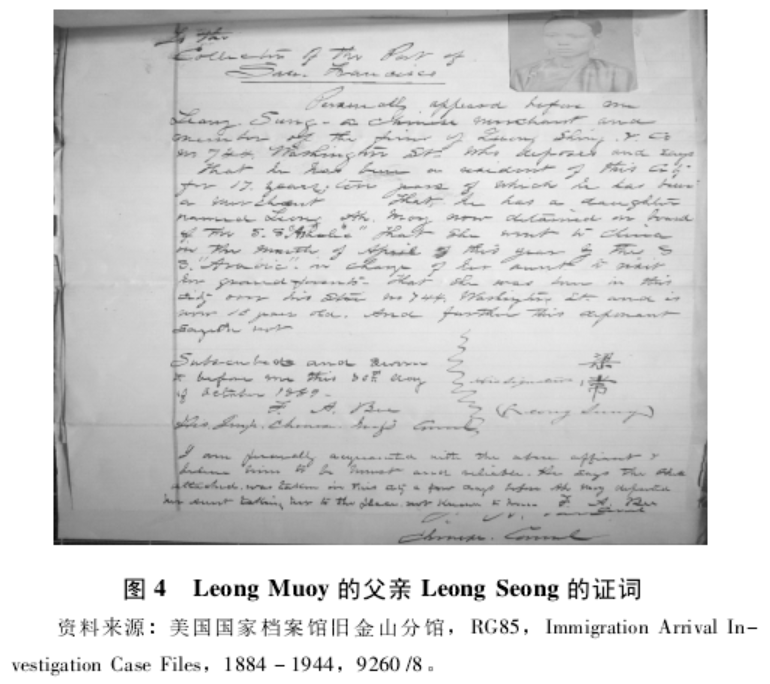 To the
Collector of the Port of
San Francisco
Personally appeared before me
Leong Sung - a Chinese merchant and
member of the firm of Leong Shing & Co
no 744 Washington St. who deposes and says
that he has been a resident of this city
for 17 years. ten years of which he has been
a merchant That he has a daughter
named Leong Ah. Moy now detained on board
of the S. S. "Arabic" That she went to China
in the month of April of this year by the S
S. "Arabic". in charge of her aunt to visit
her grand parents - that she was born in this
city over his store no 744. Washington St and is
now 15 years old. And further this deponent
sayeth not
Subscribed and sworn
to before me this 30th day
of October 1889 -
F. A. Bee
His. Imp. Chinese Maj's Consul
梁
常
(Leong Sung)
I am personally acquainted with the above affiant &
believe him to be honest and reliable. He says the
attached was taken in this city a few days before Ah Moy departed
her aunt taking her to the place. not known to him F. A. Bee
Chinese Consul
图 4 Leong Muoy 的父亲 Leong Seong 的证词
资料来源：美国国家档案馆旧金山分馆，RG85，Immigration Arrival In-
vestigation Case Files，1884 - 1944，9260 /8。